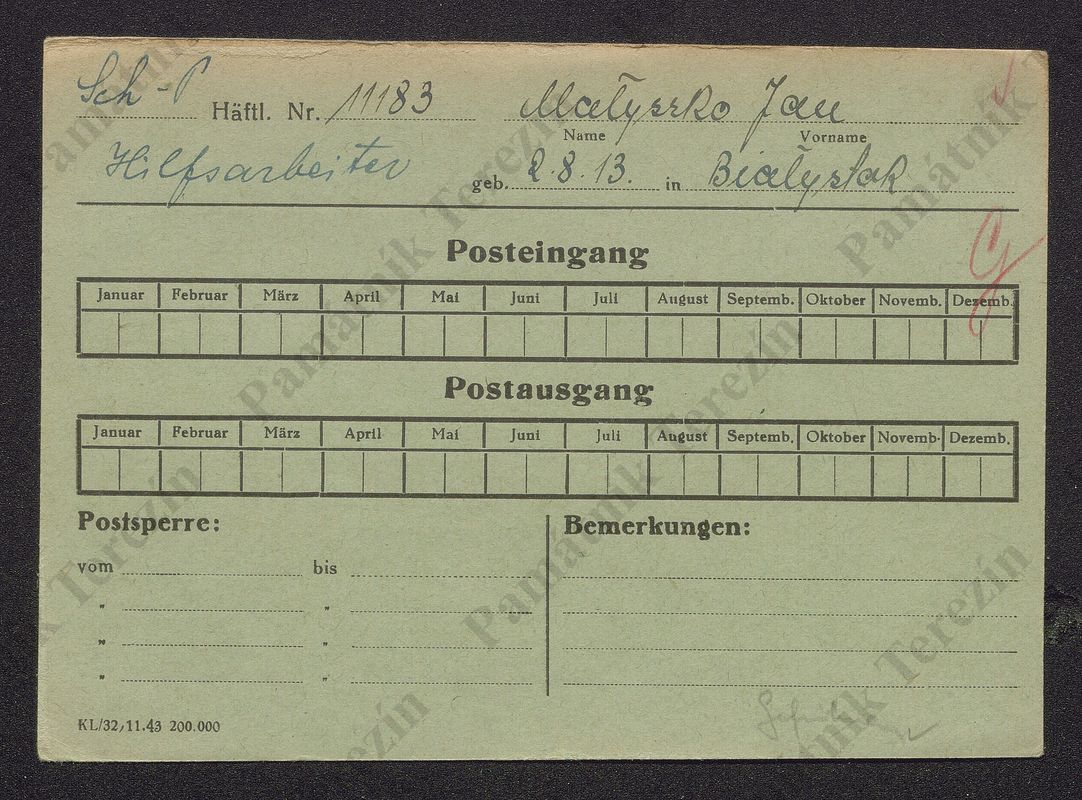 Sch-P Häftl. Nr. 11183 Małyszko Jan
Name Vorname
Hilfsarbeiter geb. 2.8.13. in Białystok
Posteingang
Januar Februar März April Mai Juni Juli August Septemb. Oktober Novemb. Dezemb.
Postausgang
Januar Februar März April Mai Juni Juli August Septemb. Oktober Novemb. Dezemb.
Postsperre: Bemerkungen:
vom bis
" "
" "
" "
KL/32, 11.43 200.000
Památník Terezín